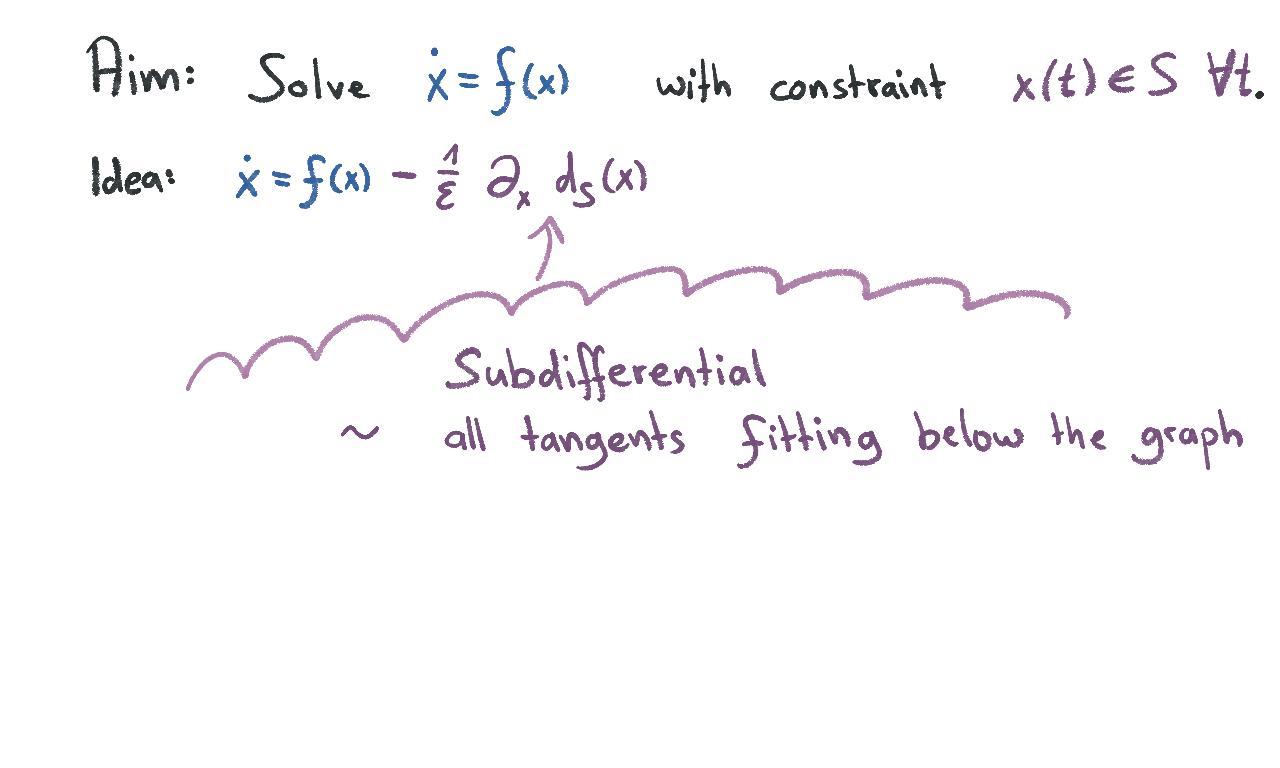 Aim: Solve ẋ = f(x) with constraint x(t) ∈ S ∀t.
Idea: ẋ = f(x) - 1/ε ∂ₓ d_S(x)
Subdifferential
~ all tangents fitting below the graph